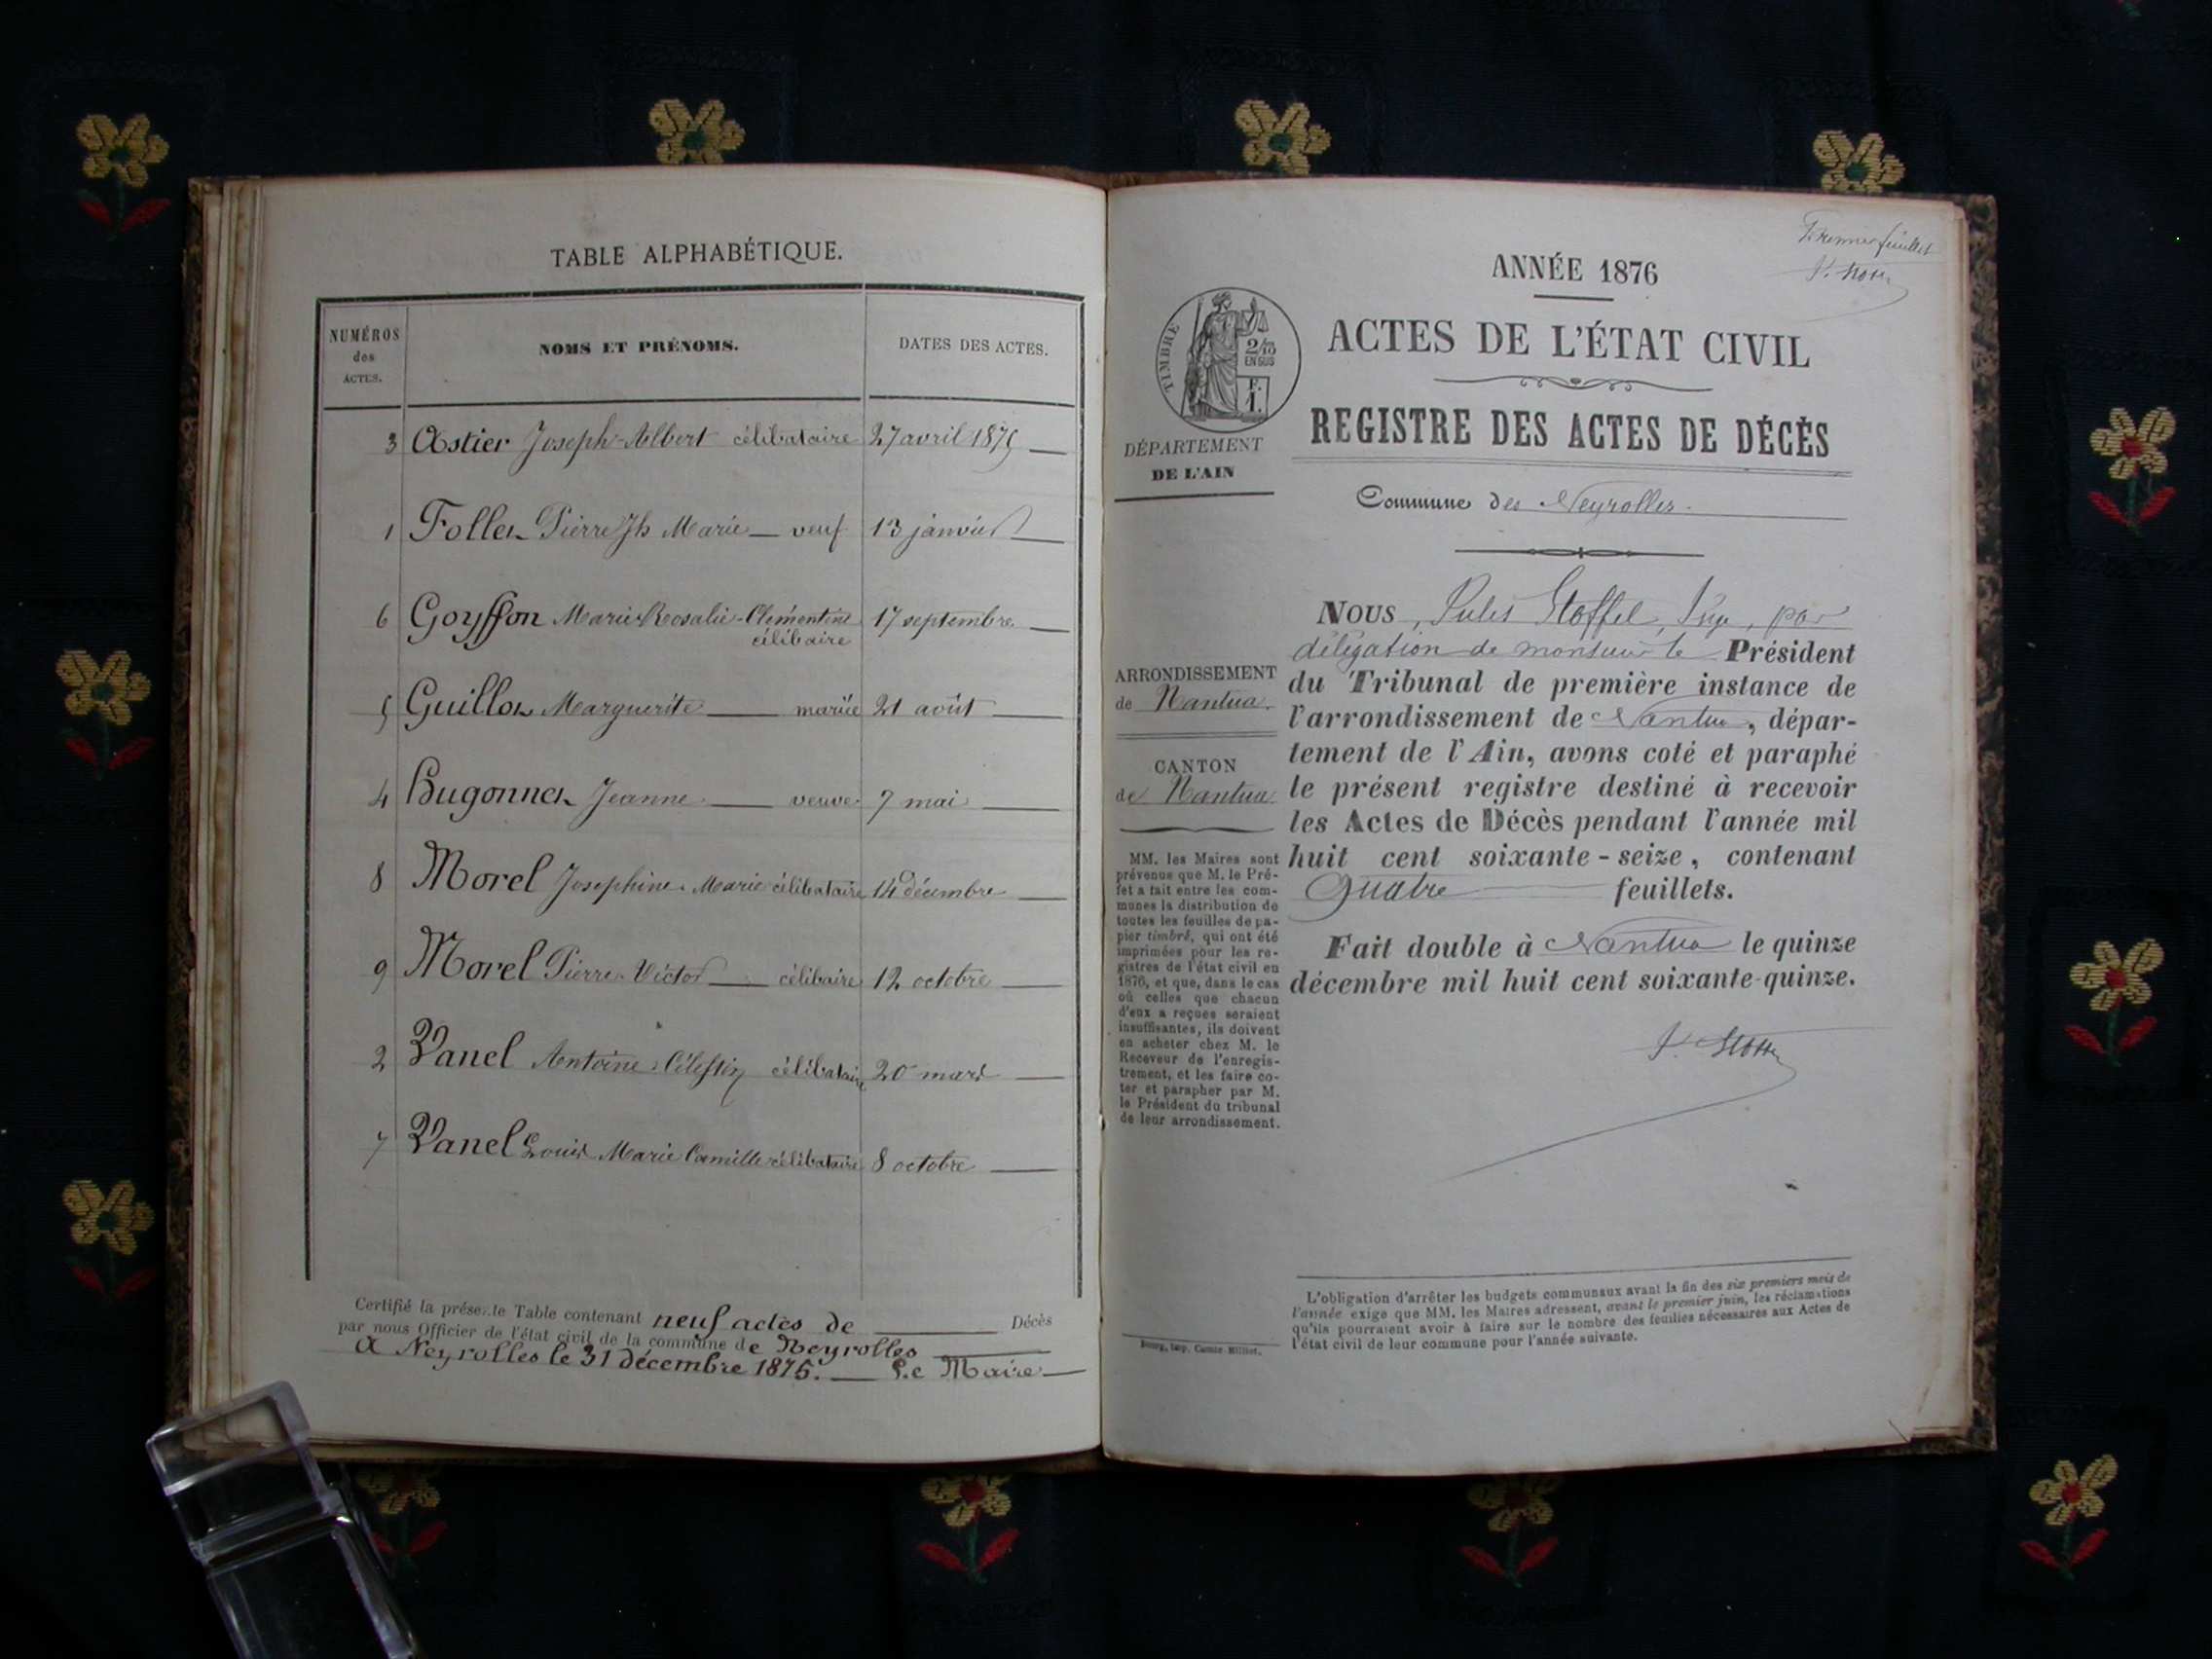 TABLE ALPHABÉTIQUE.
NUMÉROS
des
ACTES.
NOMS ET PRÉNOMS.
DATES DES ACTES.
3 Astier Joseph-Albert célibataire 27 avril 1875
1 Follet Pierre Jh Marie veuf 13 janvier
6 Goyffon Marie-Rosalie-Clémentine 17 septembre
célibaire
5 Guillot Marguerite mariée 21 août
4 Hugonnet Jeanne veuve 7 mai
8 Morel Josephine Marie célibataire 14 décembre
9 Morel Pierre Victor célibaire 12 octobre
2 Vanel Antoine Célestin célibataire 20 mars
7 Vanel Louis Marie Camille célibataire 8 octobre
Certifié la présente Table contenant neuf actes de Décès
par nous Officier de l'état civil de la commune de Neyrolles
A Neyrolles le 31 décembre 1875. Le Maire
Premier feuillet
ANNÉE 1876
TIMBRE
2/10
EN SUS
F.
1.
ACTES DE L'ÉTAT CIVIL
REGISTRE DES ACTES DE DÉCÈS
DÉPARTEMENT
DE L'AIN
Commune des Neyrolles.
ARRONDISSEMENT
de Nantua.
CANTON
de Nantua
MM. les Maires sont
prévenus que M. le Pré-
fet a fait entre les com-
munes la distribution de
toutes les feuilles de pa-
pier timbré, qui ont été
imprimées pour les re-
gistres de l'état civil en
1876, et que, dans le cas
où celles que chacun
d'eux a reçues seraient
insuffisantes, ils doivent
en acheter chez M. le
Receveur de l'enregis-
trement, et les faire co-
ter et parapher par M.
le Président du tribunal
de leur arrondissement.
NOUS, Jules Stoffel, Juge, par
délégation de monsieur le Président
du Tribunal de première instance de
l'arrondissement de Nantua, dépar-
tement de l'Ain, avons coté et paraphé
le présent registre destiné à recevoir
les Actes de Décès pendant l'année mil
huit cent soixante-seize, contenant
Quatre feuillets.
Fait double à Nantua le quinze
décembre mil huit cent soixante-quinze.
L'obligation d'arrêter les budgets communaux avant la fin des six premiers mois de
l'année exige que MM. les Maires adressent, avant le premier juin, les réclamations
qu'ils pourraient avoir à faire sur le nombre des feuilles nécessaires aux Actes de
l'état civil de leur commune pour l'année suivante.
Bourg, imp. Comte-Milliet.